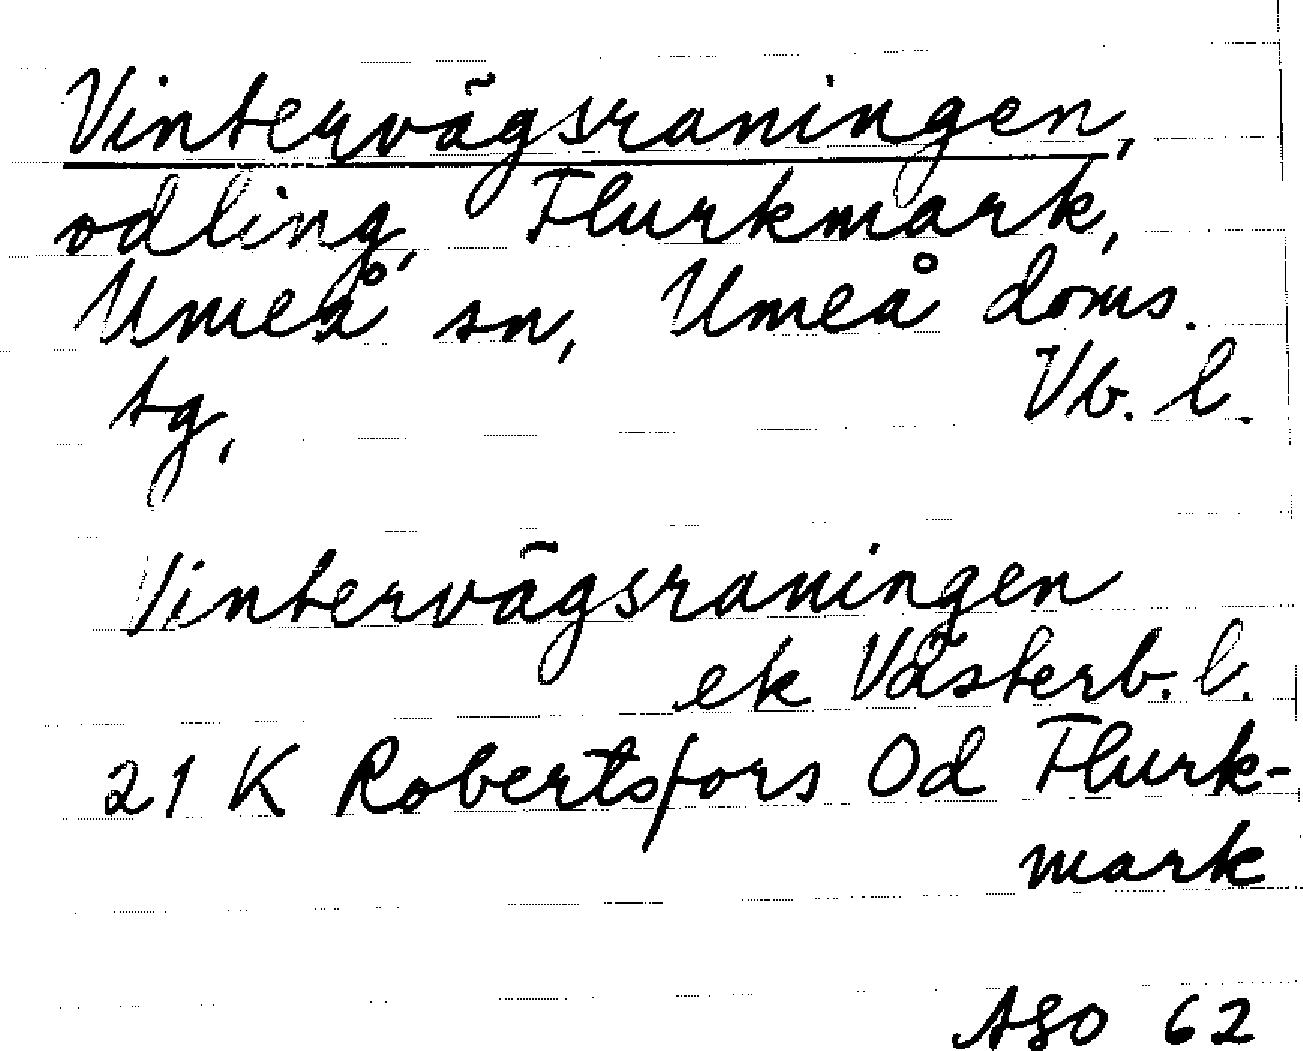 Vintervägsraningen,
odling, Flurkmark,
Umeå sn, Umeå doms.
tg, Vb. l.
Vintervägsraningen
ek Västerb. l.
21 K Robertsfors Od Flurk-
mark
ASO 62